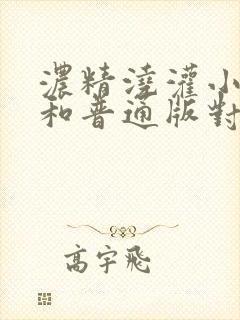 濃精澆灌小
和普通版對
高宇飛